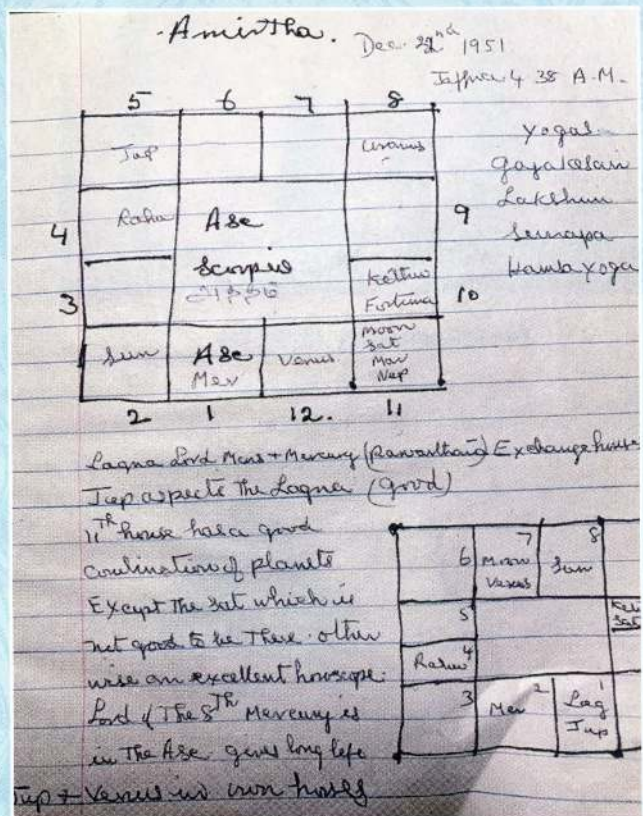 Amirtha.
Dec. 22nd 1951
Jaffna 4 38 A.M.
5 6 7 8
Jup Uranus
4 Rahu Asc 9
Scorpio
3 Kethu 10
Fortuna
Sun Asc Venus Moon
Mer Sat
Mar
Nep
2 1 12. 11
Yogas
Gajakesari
Lakshmi
Sunapa
Hamba Yoga
Lagna Lord Mars + Mercury Exchange house
Jup aspects The Lagna (good)
11Th house has a good
combination of planets
Except The Sat which is
not good to be There. other
wise an excellent horoscope.
Lord of The 8Th Mercury is
in The Asc gives long life
Jup + Venus in own houses
6 7 8
Moon Sun
Venus
5 Ket
Sat
Rahu 4
3 Mer 2 Lag 1
Jup